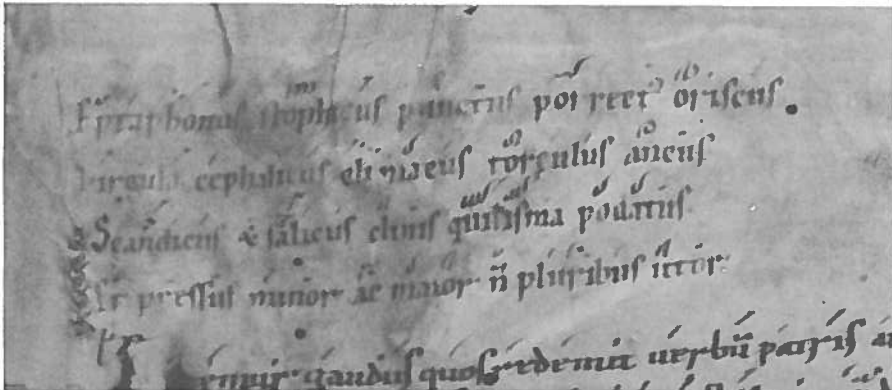 Eptaphonus strophicus punctus porrectꝰ oriscus.
Virgula cephalicus climacus torculus ancus
Scandicus & salicus clinis quilisma podatus
Et pressus minor ac maior n̄ pluribus utor.
gaudiis quos redemit uerbū patris